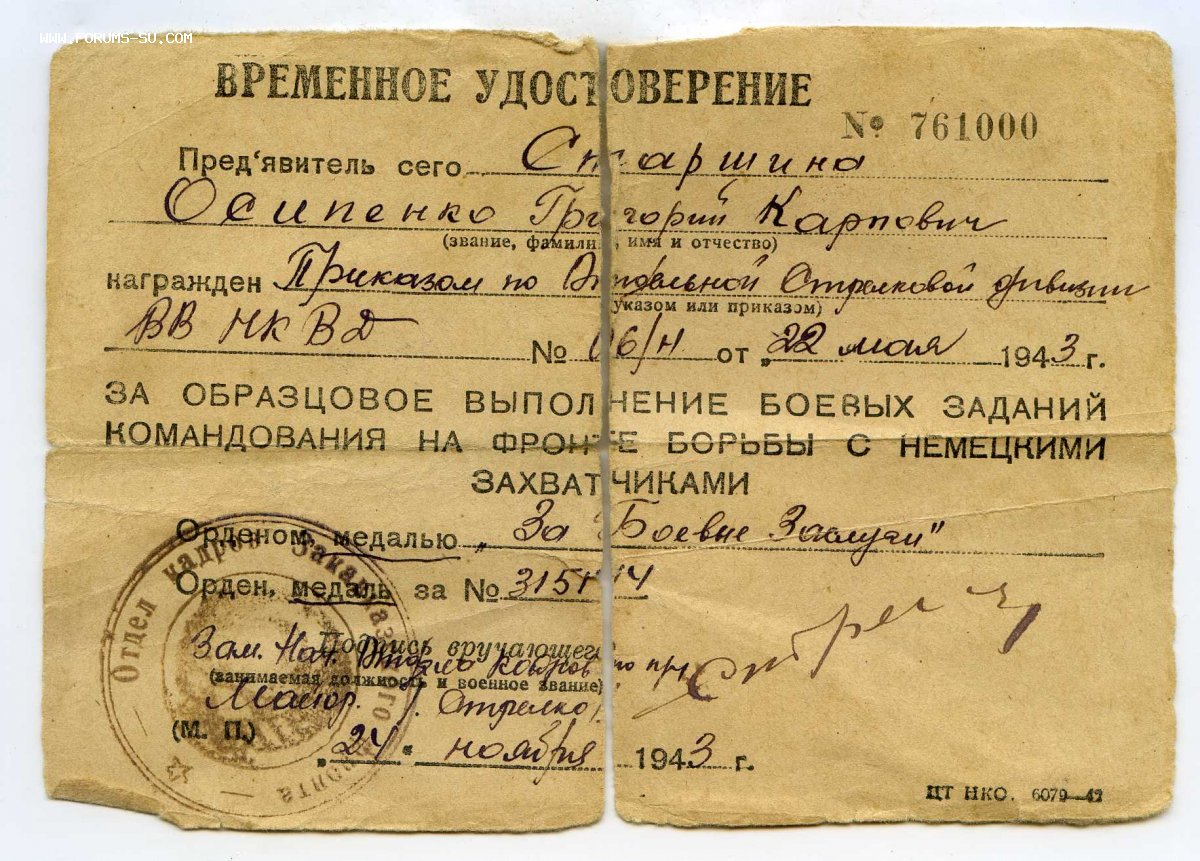 WWW.FORUMS-SU.COM
ВРЕМЕННОЕ УДОСТОВЕРЕНИЕ
№ 761000
Пред'явитель сего Старшина
Осипенко Григорий Карпович
(звание, фамилия, имя и отчество)
награжден Приказом по Отдельной Стрелковой дивизии
(указом или приказом)
ВВ НКВД № 06/н от „22 мая 1943 г.
ЗА ОБРАЗЦОВОЕ ВЫПОЛНЕНИЕ БОЕВЫХ ЗАДАНИЙ
КОМАНДОВАНИЯ НА ФРОНТЕ БОРЬБЫ С НЕМЕЦКИМИ
ЗАХВАТЧИКАМИ
Орденом медалью „За Боевые Заслуги"
Орден, медаль за №
Подпись вручающего
Зам. Нач. Отдела кадров по
(занимаемая должность и военное звание)
Майор
(М. П.)
„24" ноября 1943 г.
Отдел кадров Закавказского фронта
ЦТ НКО. 6079—42